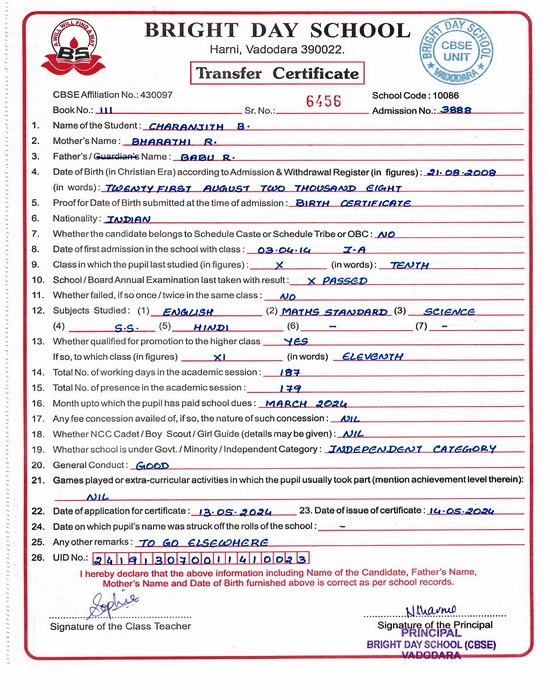 A WILL WILL FIND A WAY
BS
BRIGHT DAY SCHOOL
Harni, Vadodara 390022.
Transfer Certificate
BRIGHT DAY SCHOOL
CBSE
UNIT
VADODARA
CBSE Affiliation No.: 430097 School Code : 10086
Book No.: III Sr. No.: 6456 Admission No.: 3888
1. Name of the Student : CHARANJITH B.
2. Mother's Name : BHARATHI R.
3. Father's / Guardian's Name : BABU R.
4. Date of Birth (in Christian Era) according to Admission & Withdrawal Register (in figures) : 21.08.2008
(in words) : TWENTY FIRST AUGUST TWO THOUSAND EIGHT
5. Proof for Date of Birth submitted at the time of admission : BIRTH CERTIFICATE
6. Nationality : INDIAN
7. Whether the candidate belongs to Schedule Caste or Schedule Tribe or OBC : NO
8. Date of first admission in the school with class : 03.04.14 I-A
9. Class in which the pupil last studied (in figures) : X (in words) : TENTH
10. School / Board Annual Examination last taken with result : X PASSED
11. Whether failed, if so once / twice in the same class : NO
12. Subjects Studied : (1) ENGLISH (2) MATHS STANDARD (3) SCIENCE
(4) S.S. (5) HINDI (6) – (7) –
13. Whether qualified for promotion to the higher class YES
If so, to which class (in figures) XI (in words) ELEVENTH
14. Total No. of working days in the academic session : 187
15. Total No. of presence in the academic session : 179
16. Month upto which the pupil has paid school dues : MARCH 2024
17. Any fee concession availed of, if so, the nature of such concession : NIL
18. Whether NCC Cadet / Boy Scout / Girl Guide (details may be given) : NIL
19. Whether school is under Govt. / Minority / Independent Category : INDEPENDENT CATEGORY
20. General Conduct : GOOD
21. Games played or extra-curricular activities in which the pupil usually took part (mention achievement level therein):
NIL
22. Date of application for certificate : 13.05.2024 23. Date of issue of certificate : 14.05.2024
24. Date on which pupil's name was struck off the rolls of the school : –
25. Any other remarks : TO GO ELSEWHERE
26. UID No.: 241913070011410023
I hereby declare that the above information including Name of the Candidate, Father's Name,
Mother's Name and Date of Birth furnished above is correct as per school records.
Sophie
Signature of the Class Teacher Signature of the Principal
PRINCIPAL
BRIGHT DAY SCHOOL (CBSE)
VADODARA